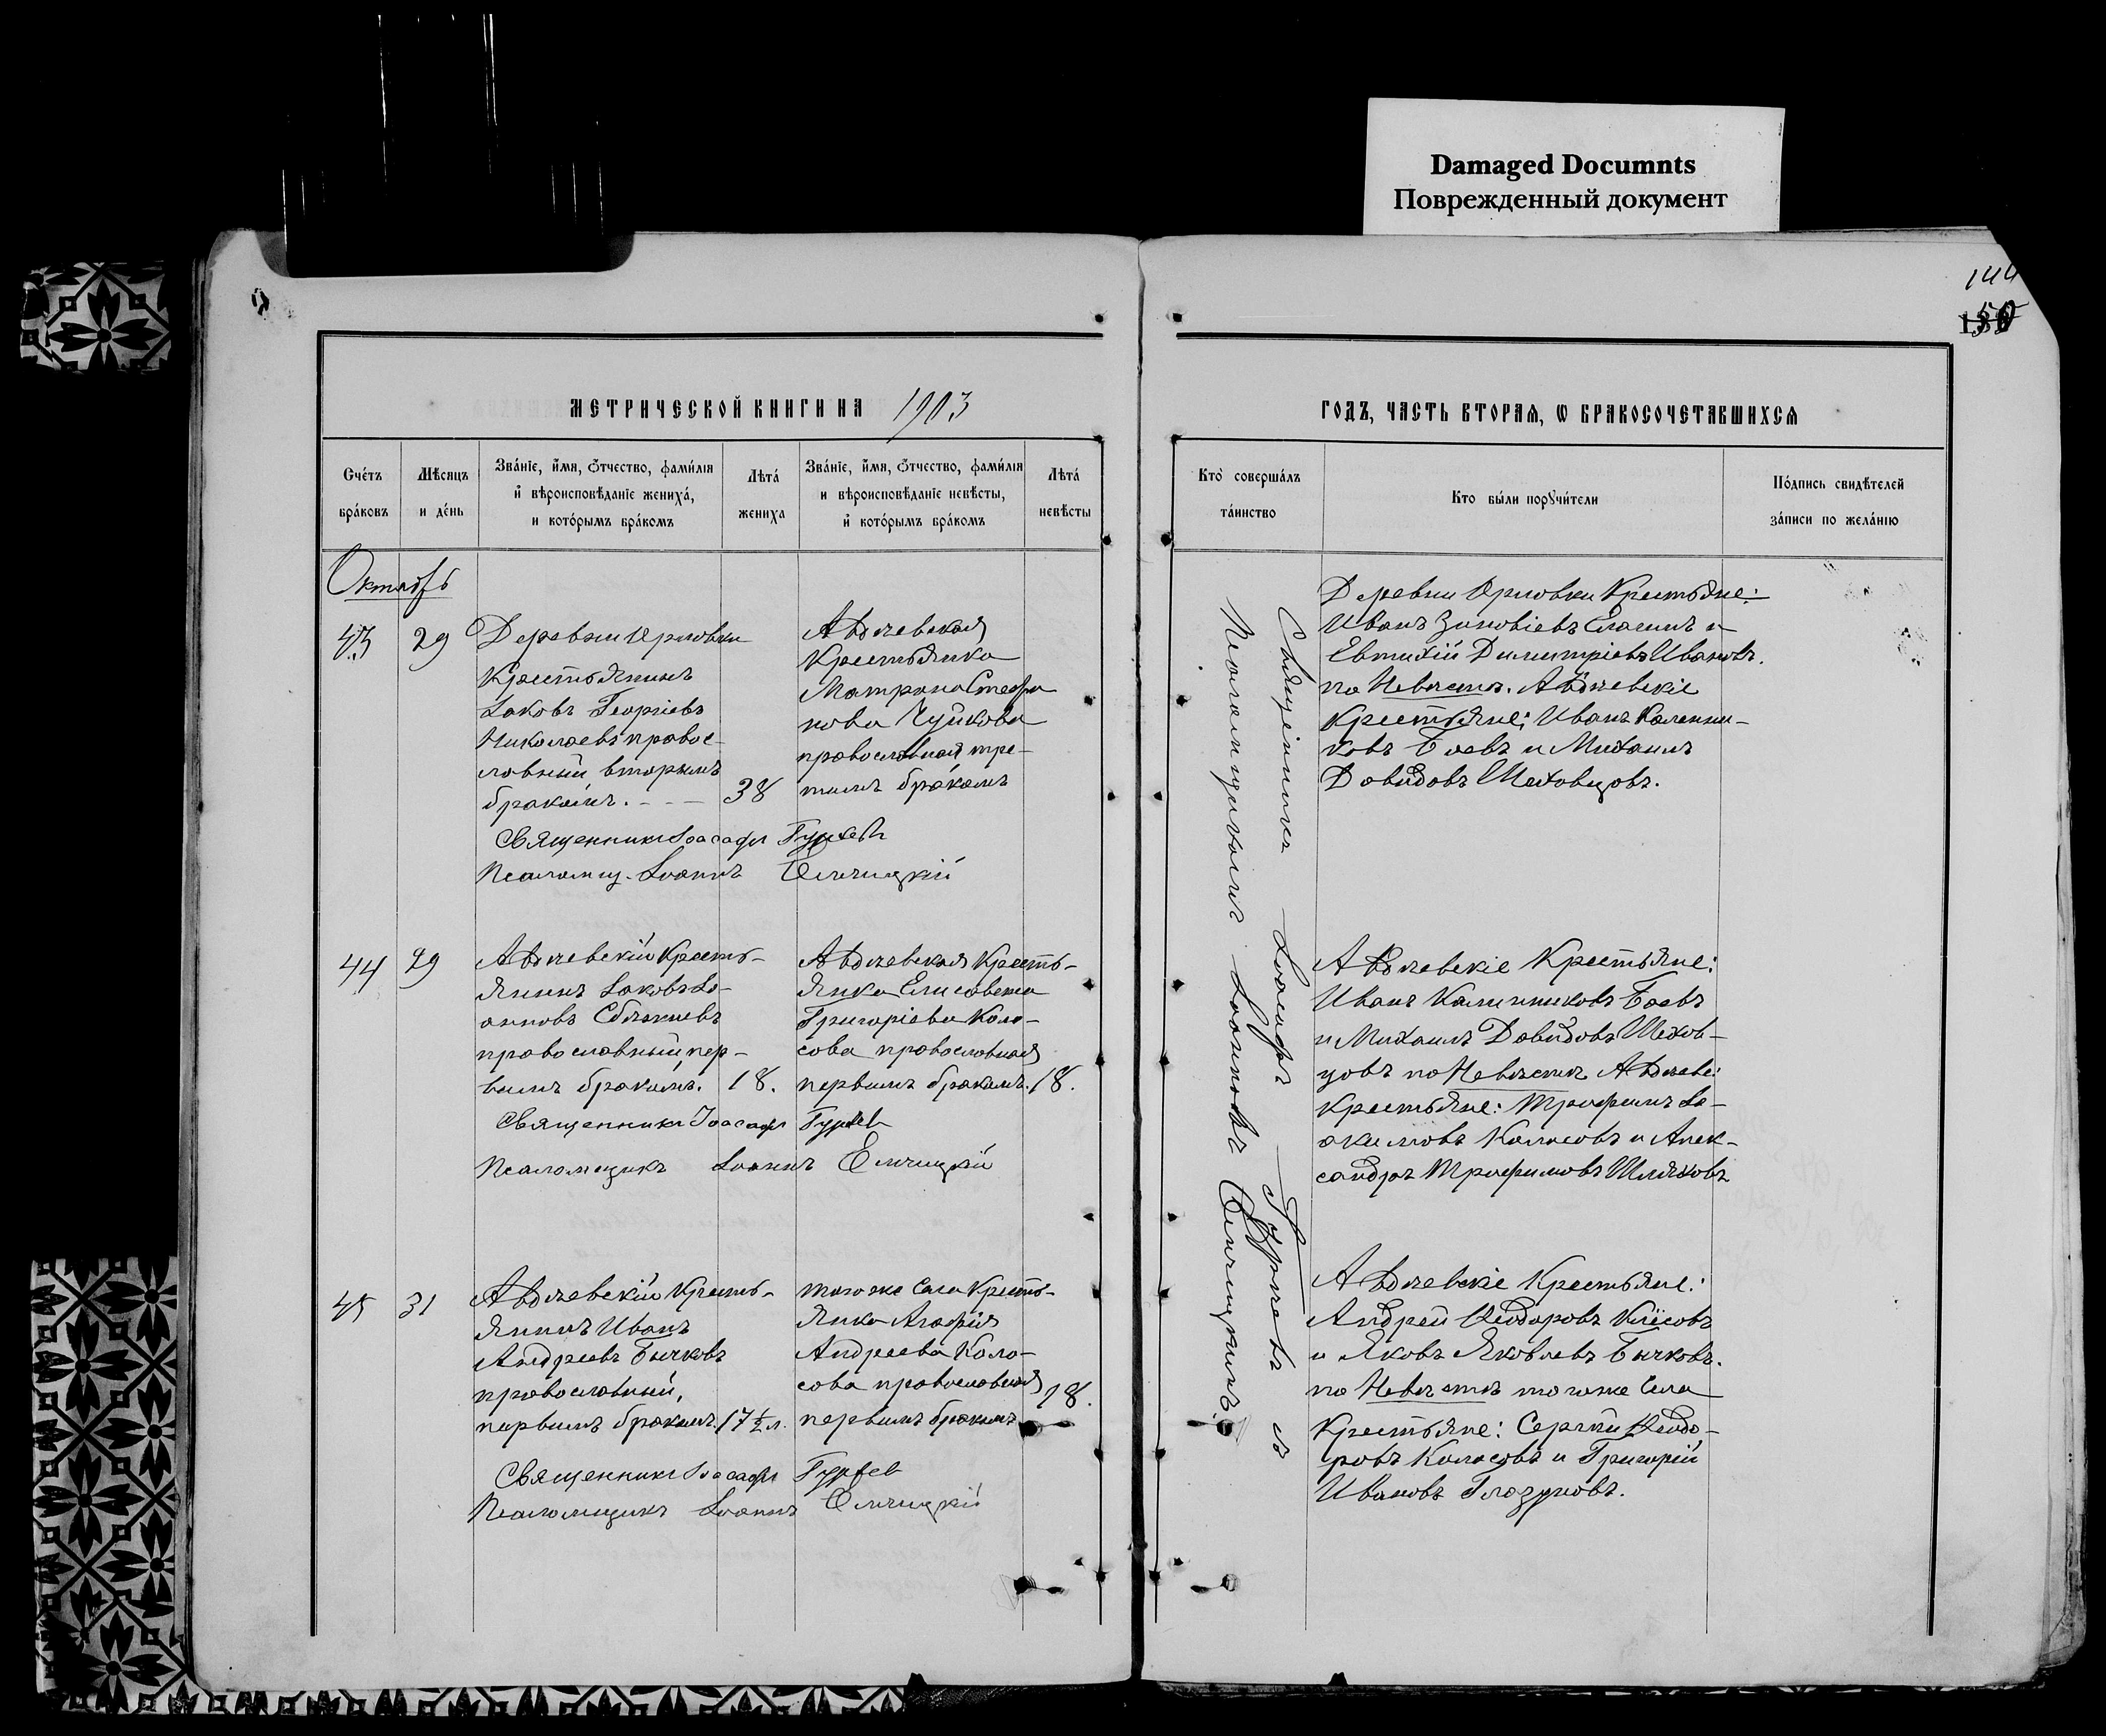 Damaged Documnts
Поврежденный документ
144
МЕТРИЧЕСКОЙ КНИГИ НА 1903
ГОДЪ, ЧАСТЬ ВТОРАЯ, Ѡ БРАКОСОЧЕТАВШИХСЯ
Счетъ браковъ
Мѣсяцъ и день
Званіе, имя, отчество, фамилія
и вѣроисповѣданіе жениха,
и которымъ бракомъ
Лѣта жениха
Званіе, имя, отчество, фамилія
и вѣроисповѣданіе невѣсты,
и которымъ бракомъ
Лѣта невѣсты
Кто совершалъ таинство
Кто были поручители
Подпись свидѣтелей
записи по желанію
Октябрь
43
29
Деревни Орловки
Крестьянинъ
Іаковъ Георгіевъ
Николаевъ правос-
лавный вторымъ
бракомъ. - - -
38
Авдѣевская
Крестьянка
Матрона Стефа
нова Чуйкова
православная тре-
тимъ бракомъ
Священникъ Іоасафъ Гурьевъ
Псаломщ. Іоаннъ
Деревни Орловки Крестьяне:
Иванъ Зиновіевъ и
Евтихій Димитріевъ Ивановъ.
по Невѣстѣ. Авдѣевскіе
Крестьяне: Иванъ Калинни-
ковъ Боевъ и Михаилъ
Давидовъ Шеховцовъ.
44
29
Авдѣевскій Кресть-
янинъ Іаковъ Іо-
анновъ
православный пер-
вымъ бракомъ.
18.
Авдѣевская Кресть-
янка Елисавета
Григоріева Коло-
сова православная
первымъ бракомъ.
18.
Священникъ Іоасафъ Гурьевъ
Псаломщикъ Іоаннъ
Авдѣевскіе Крестьяне:
Иванъ Калинниковъ Боевъ
и Михаилъ Давидовъ Шехов-
цовъ по Невѣстѣ Авдѣевс:
Крестьяне: Трофимъ Іо-
акимовъ Колосовъ и Алек-
сандръ Трофимовъ Шляховъ
45
31
Авдѣевскій Кресть-
янинъ Иванъ
Андреевъ Бычковъ
православный,
первымъ бракомъ.
17 ½ л.
того же Села Кресть-
янка Агафія
Андреева Коло-
сова православная
первымъ бракомъ
18.
Священникъ Іоасафъ Гурьевъ
Псаломщикъ Іоаннъ
Авдѣевскіе Крестьяне:
Андрей Ѳеодоровъ
и Яковъ Яковлевъ Бычковъ.
по Невѣстѣ того же Села
Крестьяне: Сергій Ѳеодо-
ровъ Колосовъ и Григорій
Ивановъ Глазуновъ.
Священникъ Іоасафъ Гурьевъ съ
Псаломщикомъ Іоанномъ